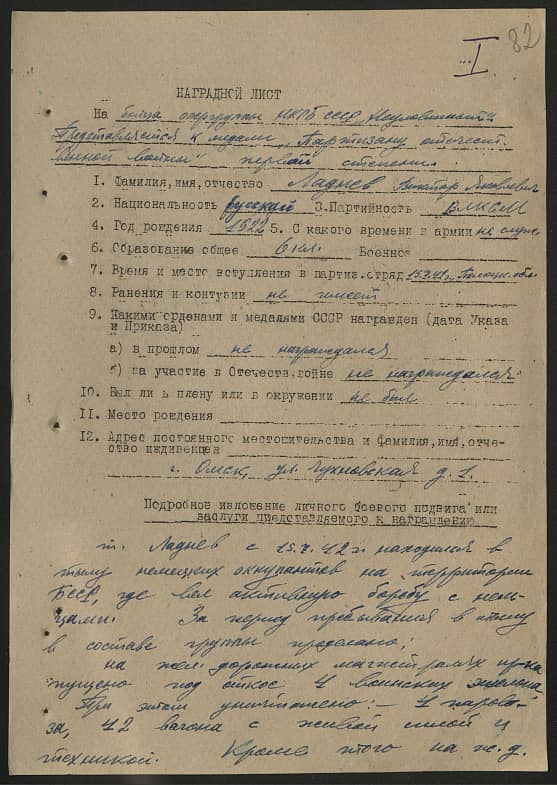 82
I
НАГРАДНОЙ ЛИСТ
На бойца опергруппы НКГБ СССР
Представляется к медали „Партизану отечест-
венной войны" первой степени
1. Фамилия, имя, отчество Ладнев Виктор Яковлевич
2. Национальность русский 3. Партийность ВЛКСМ
4. Год рождения 1922 5. С какого времени в армии не служ.
6. Образование общее 6 кл. Военное
7. Время и место вступления в партиз. отряд обл.
8. Ранения и контузии не имеет
9. Какими орденами и медалями СССР награжден (дата Указа
и Приказа)
а) в прошлом не награждался
б) за участие в Отечеств. войне не награждался
10. Был ли в плену или в окружении не был
11. Место рождения
12. Адрес постоянного местожительства и фамилия, имя, отче-
ство иждивенцев
г. Омск, ул. д. 1.
Подробное изложение личного боевого подвига или
заслуги представляемого к награждению
т. Ладнев с 42 г. находился в
тылу немецких оккупантов на территории
БССР, где вел активную борьбу с нем-
цами. За период пребывания в тылу
в составе группы проделано:
на жел. дорожных магистралях
пущено под откос 4 воинских эшелона
При этом уничтожено:- 4 парово-
за, 42 вагона с живой силой и
техникой. Кроме этого на ж.д.